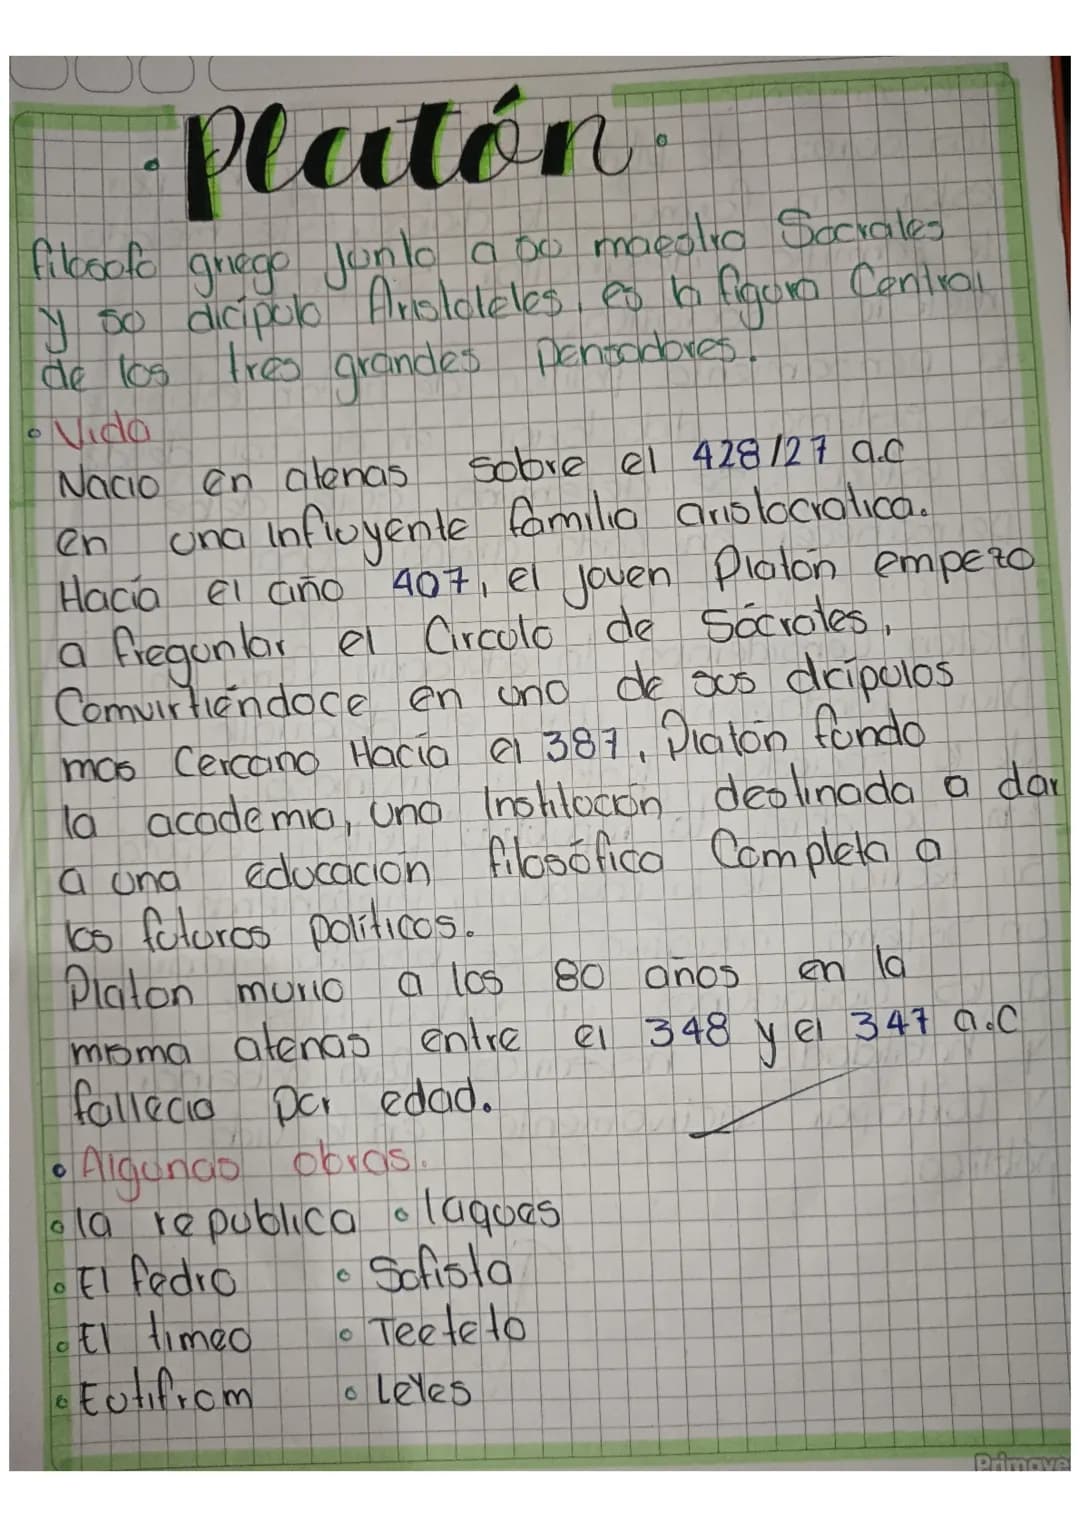 Platón
filosofo griego junto a su maestro Socrates
y su dicipulo Aristoteles, es la figura Central
de los tres grandes pensadores.
Vida
Nacio en atenas sobre el 428/27 a.c
en una influyente familia aristocratica.
Hacía el año 407, el joven Platón empezo
a freguntar el Circulo de Sócrates,
Comvirtiéndoce en uno de sus dicípulos
mas Cercano Hacía el 387, Platón fundo
la academia, una Institución destinada a dar
a una educación filosófica Completa a
los futuros políticos.
Platon murio a los 80 años en la
misma atenas entre el 348 y el 347 a.C
fallecio por edad.
Algunas obras.
la republica lagoas
El fedro Sofista
El timeo Teeteto
Eutifrom Leyes
Primave